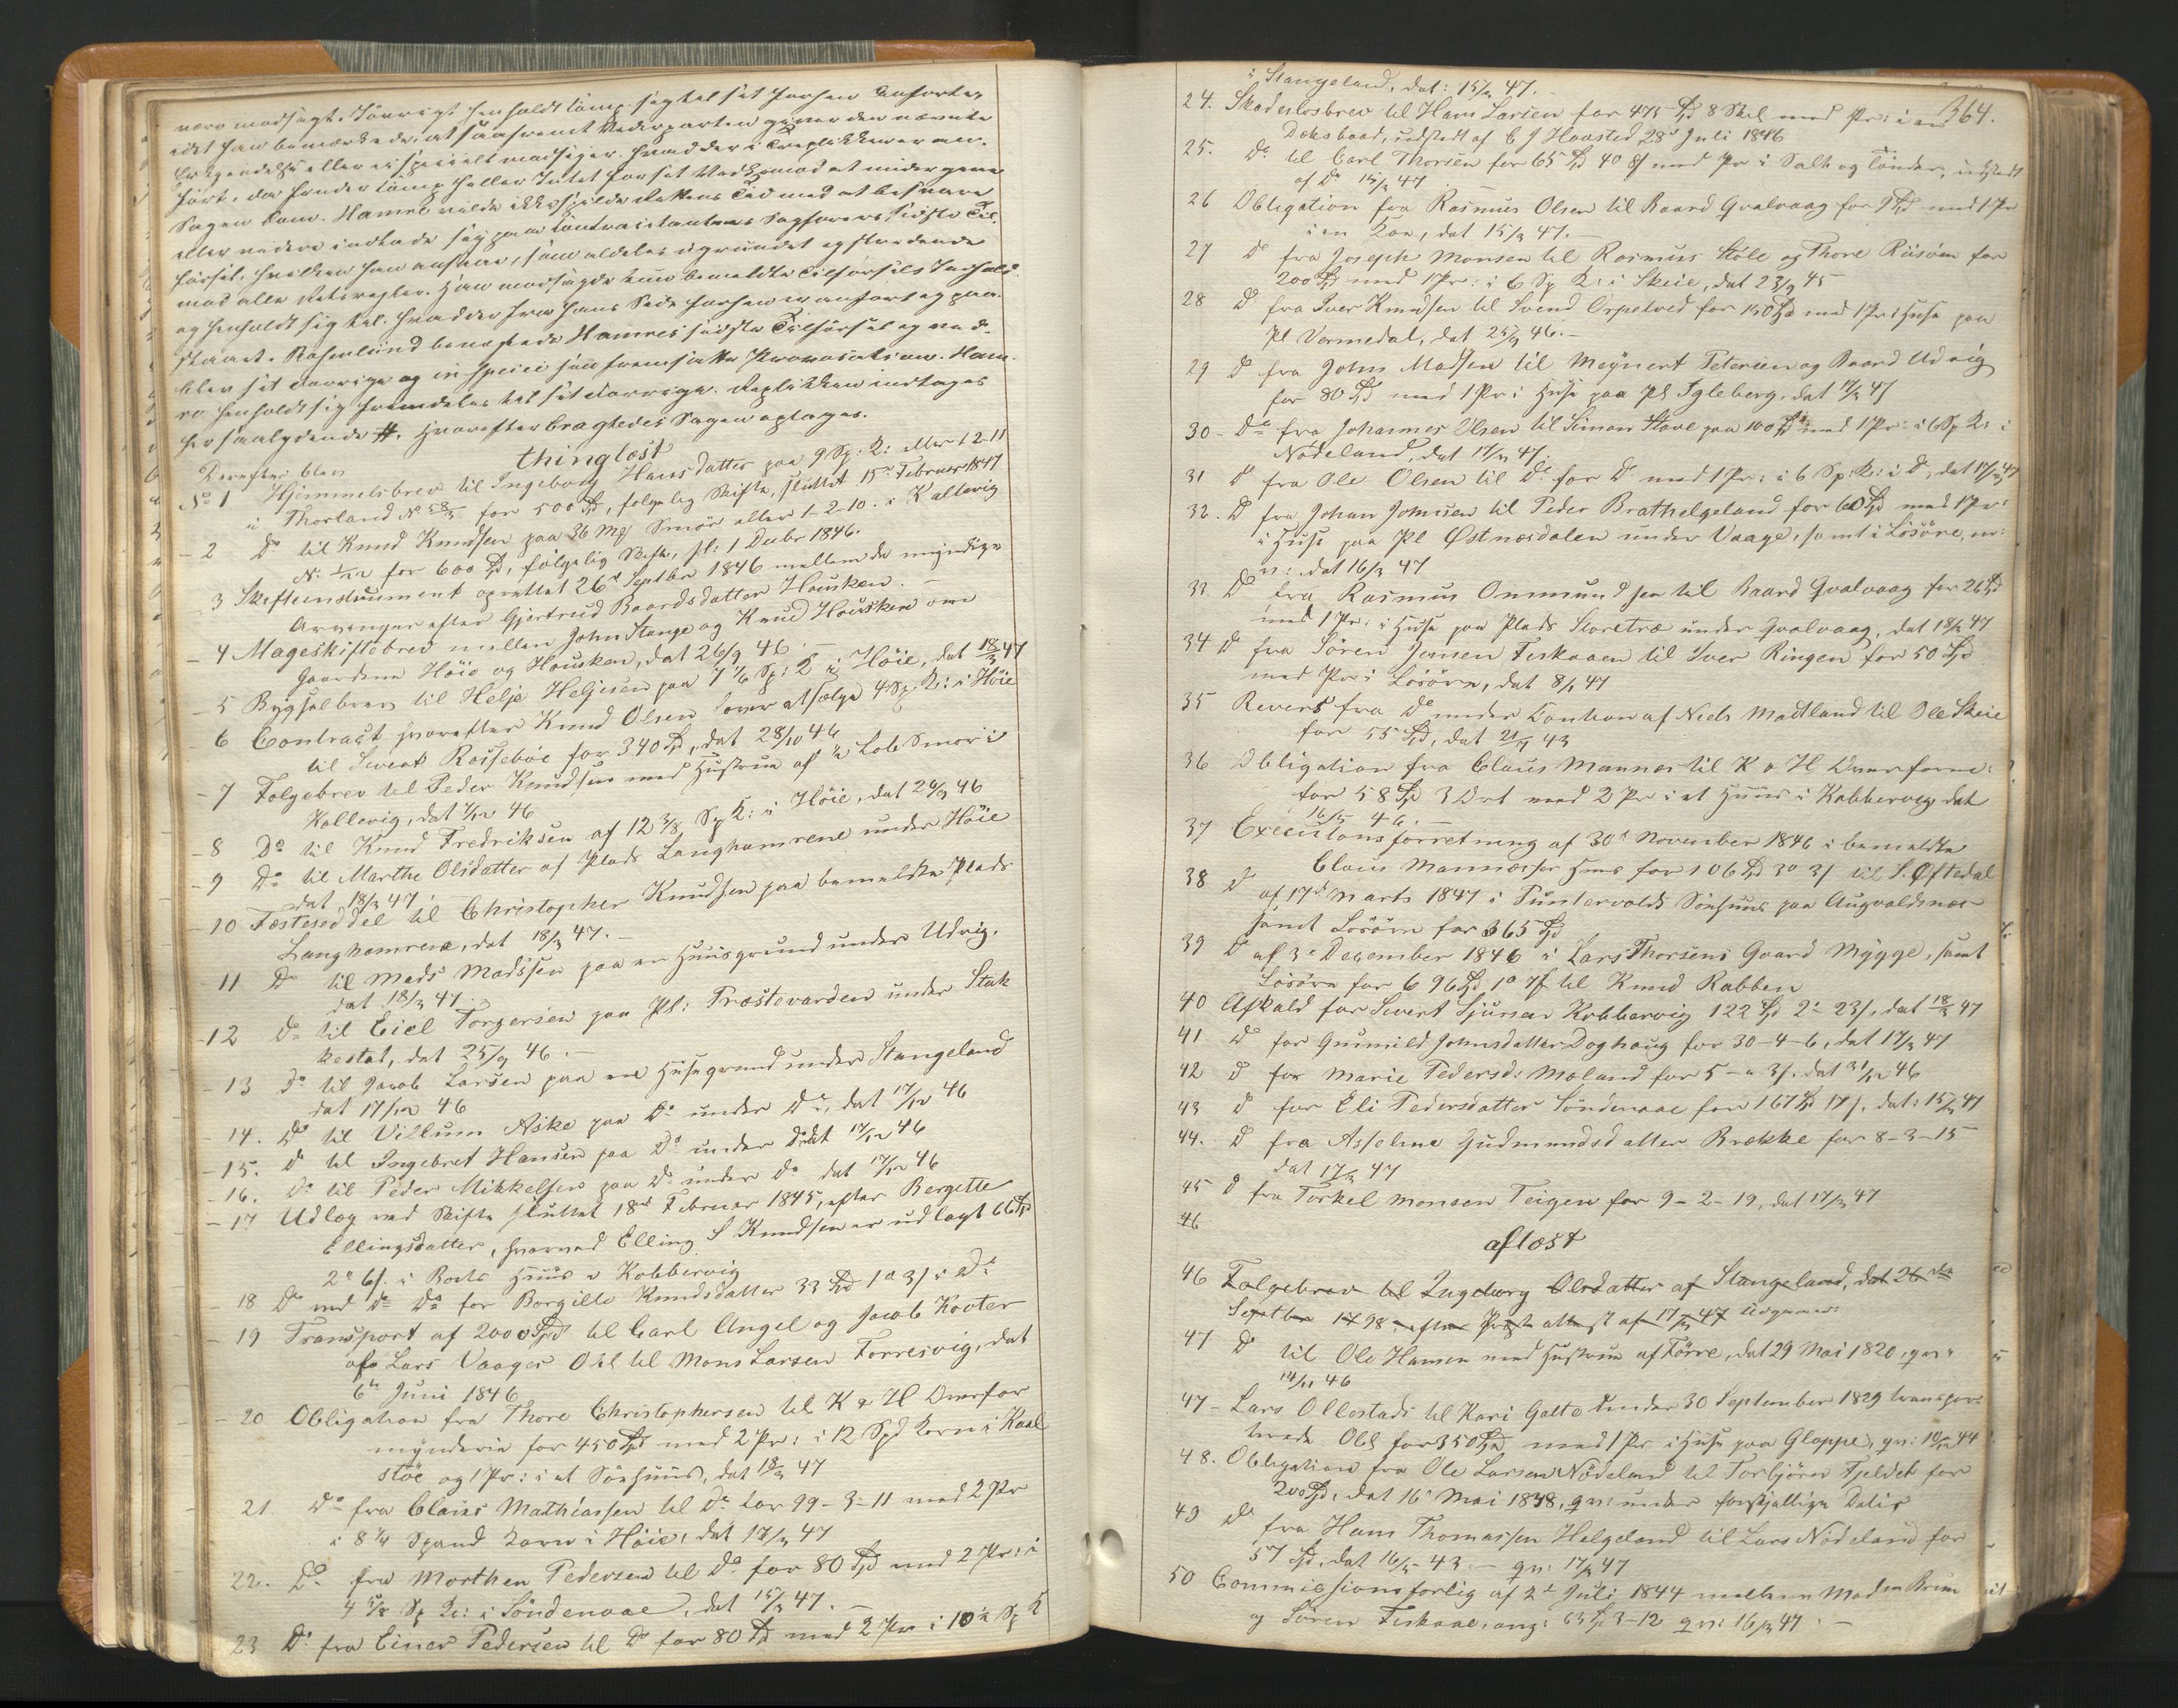 være modsagt. Iøvrigt henholdt Comp. sig til sit forhen Anførte,
idet han bemærkede, at saafremt Vederparten
eller ei specielt modsiger, hvad der i Replikken er an-
ført, da finder Comp. heller Intet
Sagen Dom. Hamre vilde ikke spilde Rettens Tid med at besvare
eller videre indlade sig paa Contracitantens Sagførers sidste Til-
førsel, hvilken han ansaae, som aldeles ugrundet og stridende
mod alle Retsregler. Han modsagde kun bemeldte Tilførsels Indhold
og henholdt sig til, hvad der fra hans Side forhen er anført og paa-
staaet. Rosenlund benegtede Hamres sidste Tilførsel og ved-
blev sit Øvrige og in specie sin fremsatte Provocation. Ham-
re henholdt sig fremdeles til sit Øvrige. Replikken indtages
her saalydende #. Hvorefter Eragtedes Sagen optages.
Derefter blev
thinglæst
No 1 Hjemmelsbrev til Ingeborg Hansdatter paa 9 Sp: K: eller 1-2-11
i Thorland No 58 for 500 Spd, følgelig Skifte, sluttet 15de Februar 1847
- 2 Do til Knud Knudsen paa 36 Mk Smør eller 1-2-10. i Kallevig
No: for 600 Spd, følgelig Skifte, sl: 1 Decbr 1846.
- 3 Skifteinstrument oprettet 26de Septbr 1846 mellem de myndige
Arvinger efter Gjertrud Baardsdatter Housken. -
- 4 Mageskiftebrev mellem John Stange og Knud Housken om
Gaardene Höie og Housken, dat 26/9 46 -
- 5 Bygselbrev til Helje Heljesen paa 7 1/6 Sp: K i Höie, dat 18/3 47
- 6 Contract hvorefter Knud Olsen lover at sælge 4 Sp. K: i Höie
til Sivert Rossebøe for 340 Spd, dat 28/10 46
- 7 Følgebrev til Peder Knudsen med Hustrue af ½ Løb Smør i
Kallevig, dat 1/12 46
- 8 Do til Knud Fredriksen af 12 3/8 Sp K: i Höie, dat 26/9 46
- 9 Do til Marthe Olsdatter af Plads Langhamrene under Höie
dat 18/3 47
- 10 Fæsteseddel til Christopher Knudsen paa bemeldte Plads
Langhamrene, dat 18/3 47. -
- 11 Do til Mads Madssen paa en Huusgrund under Udvig,
dat 18/3 47.
- 12 Do til Eiel Torgersen paa Pl: Træstevarden under Stak
kestad, dat 25/9 46. -
- 13 Do til Jacob Larsen paa en Husegrund under Stangeland
dat 17/12 46
- 14. Do til Villum Aske paa Do under Do, dat 17/12 46
- 15. Do til Ingebret Hansen paa Do under Do dat 17/12 46
- 16. Do til Peder Mikkelsen paa Do under Do dat 17/12 46
- 17 Udlæg ved Skifte sluttet 18de Februar 1845, efter Bergette
Ellingsdatter, hvorved Elling S Knudsen er udlagt 66 Spd
2o 6s. i Boets Huus i Kobbervig
- 18 Do ved Do Do for Borgille Knudsdatter 33 Spd 1o 3s i Do
- 19 Transport af 2000 Spd til Carl Angel og Jacob Kooter
af Lars Vaages Obl til Mons Larsen Førresvig, dat
6te Juni 1846
- 20 Obligation fra Thore Christophersen til K & H Overfor
mynderie for 450 Spd med 2 Pr: i 12 Spd Korn i Kaal
støe og 1 Pr: i et Söehuus, dat 18/3 47
21. Do fra Claus Mathiassen til Do for 99-3-11 med 2 Pr
i 8 1/4 Spand Korn i Höie, dat 17/3 47
22. Do fra Morthen Pedersen til Do for 80 Spd med 2 Pr: i
4 5/8 Sp K: i Söndenaae, dat 15/3 47. -
23 Do fra Einer Pedersen til Do for 80 Spd med 2 Pr i 10½ Sp K
i Stangeland, dat: 15/3 47. -
364.
24. Skadesløsbrev til Hans Larsen for 475 Spd 8 Skil med Pr: i en
Deksbaad, udstedt af C J Haasted 28de Juli 1846
25. Do til Carl Thorsen for 65 Spd 40 s med Pr i Salt og Tönder, udstedt
af Do 15/3 47
26 Obligation fra Rasmus Olsen til Baard Qvalvaag for 9 Spd med 1 Pr
i en Koe, dat 15/3 47. -
27 Do fra Joseph Monsen til Rasmus Støle og Thore Riisöen for
200 Spd med 1 Pr: i 6 Sp K: i Skeie, dat 23/9 45
28 Do fra Iver Knudsen til Svend Orpetved for 150 Spd med 1 Pr i Huse paa
Pl Vormedal, dat 25/9 46. -
29 Do fra John Madsen til Meynert Petersen og Baard Udvig
for 80 Spd med 1 Pr i Huse paa Pl Igleberg, dat 17/3 47
30 - Do fra Johannes Olsen til Simon Stave paa 100 Spd med 1 Pr: i 6 Sp K: i
Nödeland, dat 17/3 47.
31 Do fra Ole Olsen til Do for Do med 1 Pr: i 6 Sp: K: i Do, dat 17/3 47
32. Do fra Johan Johnsen til Peder Brathelgeland for 60 Spd med 1 Pr:
i Huse paa Pl Østnæsdalen under Vaage, samt i Lösöre, m:
m: dat 16/3 47
33. Do fra Rasmus Ommundsen til Baard Qvalvaag for 26 Spd
med 1 Pr: i Huse paa Plads Storetræ under Qvalvaag, dat 18/3 47
34 Do fra Sören Jonsen Fiskaaen til Iver Ringen for 50 Spd
med Pr i Lösöre, dat 8/1 47
35 Revers fra Do under Caution af Niels Madtland til Ole Skeie
for 55 Spd, dat 43
36 Obligation fra Claus Mannæs til K & H Overform:
for 58 Spd 3 Ort med 2 Pr i et Huus i Kobbervig, dat
16/5 46. -
37 Executionsforretning af 30te November 1846 i bemeldte
Claus Mannæsses Huus for 106 Spd 3o 3s til S. Øftedal
38 Do af 17de Marts 1847 i Puntervolds Söehuus paa Augvaldsnæs
samt Lösöre for 365 Spd
39 Do af 3e December 1846 i Lars Thorsens Gaard Mygge, samt
Lösöre for 696 Spd 1o 7s til Knud Rabben
40 Afkald for Sivert Sjursen Kobbervig 122 Spd 2o 23s, dat 18/3 47
41 Do for Gunnild Johnsdatter Doghaug for 30-4-6, dat 17/3 47
42 Do for Marie Pedersd: Moland for 5-" 3s. dat 31/12 46
43 Do for Eli Pedersdatter Söndenaae for 167 Spd 17s, dat: 15/3 47
44. Do fra Asseline Gudmundsdatter Brekke for 8-3-15
dat 17/3 47
45 Do fra Torkel Monsen Teigen for 9-2-19, dat 17/3 47
46
aflæst
46 Følgebrev til Ingeborg Olsdatter af Stangeland, dat 26de
Septbr 1798, efter Præste attest af 17/3 47
47 Do til Ole Hansen med Hustrue af Førre, dat 29 Mai 1820, qv:
14/11 46
47 - Lars Ollestads til Kari Galte under 30 September 1829 transpor-
terede Obl for 350 Spd med 1 Pr i Huse paa Gloppe, qv: 10/12 44
48. Obligation fra Ole Larsen Nödeland til Torbjören Fjeldet for
200 Spd, dat 16de Mai 1838, qv: under forskjellige Datis
49 Do fra Hans Thomassen Helgeland til Lars Nödeland for
57 Spd, dat 16/5 43 - qv: 17/3 47
50 Commissionsforlig af 2de Juli 1844 mellem Madm Brun
og Sören Fiskaae, ang: 63 Spd 3-12 qv: 16/3 47. -